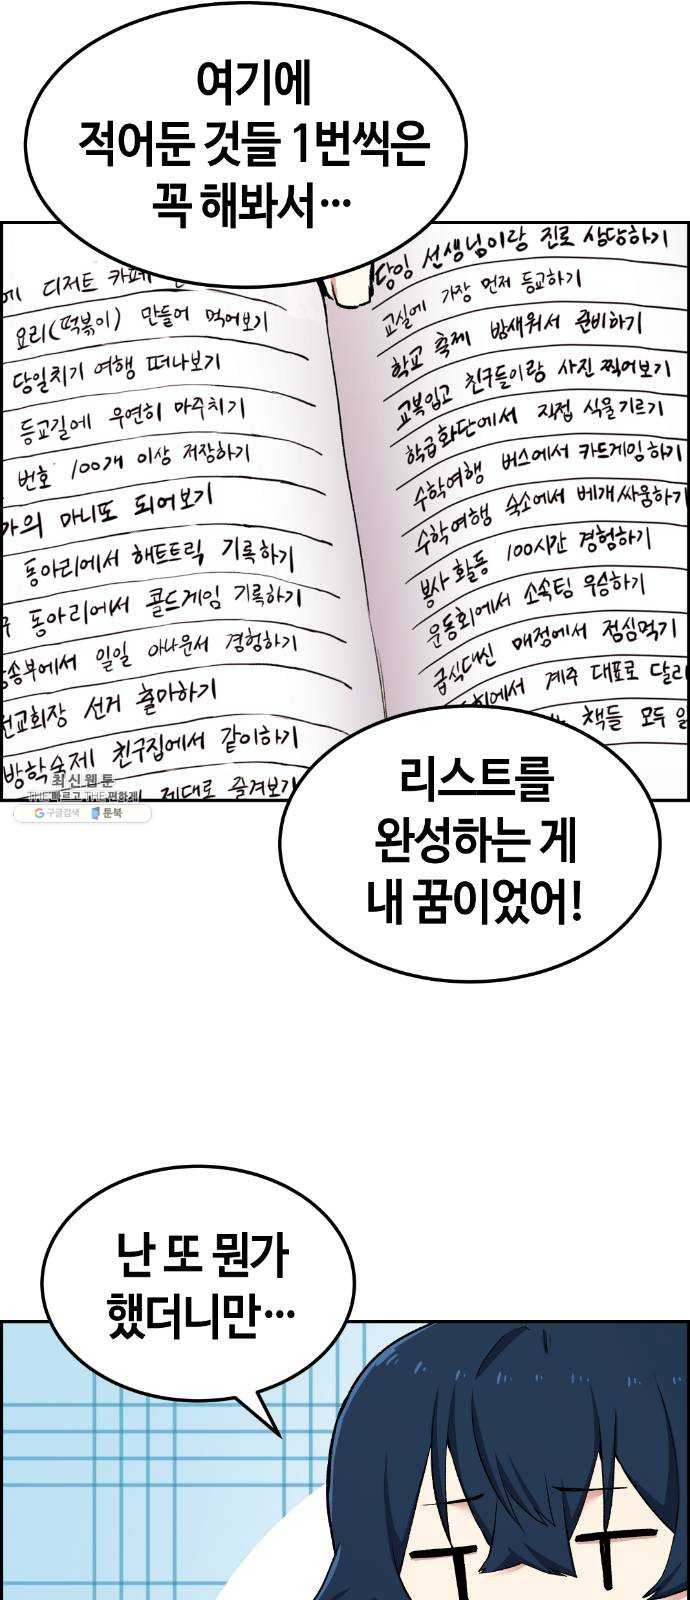 여기에
적어둔 것들 1번씩은
꼭 해봐서…
에 디저트 카페
요리(떡볶이) 만들어 먹어보기
당일치기 여행 떠나보기
등교길에 우연히 마주치기
번호 100개 이상 저장하기
가의 마니또 되어보기
동아리에서 해트트릭 기록하기
구 동아리에서 콜드게임 기록하기
방송부에서 일일 아나운서 경험하기
전교회장 선거 출마하기
방학숙제 친구집에서 같이하기
제대로 즐겨보기
담임 선생님이랑 진로 상담하기
교실에 가장 먼저 등교하기
학교 축제 밤새워서 준비하기
교복입고 친구들이랑 사진 찍어보기
학급화단에서 직접 식물기르기
수학여행 버스에서 카드게임하기
수학여행 숙소에서 베개싸움하기
봉사 활동 100시간 경험하기
운동회에서 소속팀 우승하기
급식대신 매점에서 점심먹기
회에서 계주 대표로 달리
책들 모두 일
최신웹툰
THE 빠르고 THE 편하게
구글검색 툰북
리스트를
완성하는 게
내 꿈이었어!
난 또 뭔가
했더니만…